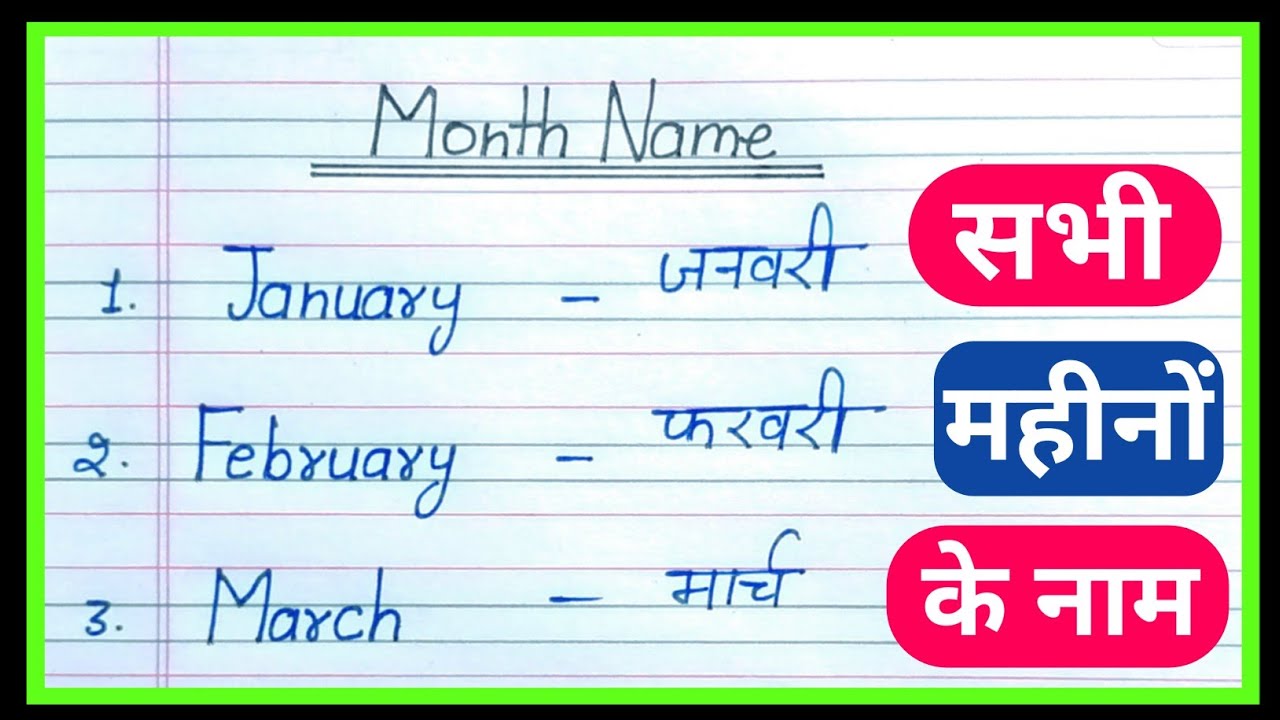 Month Name
1. January - जनवरी
2. February - फरवरी
3. March - मार्च
सभी
महीनों
के नाम